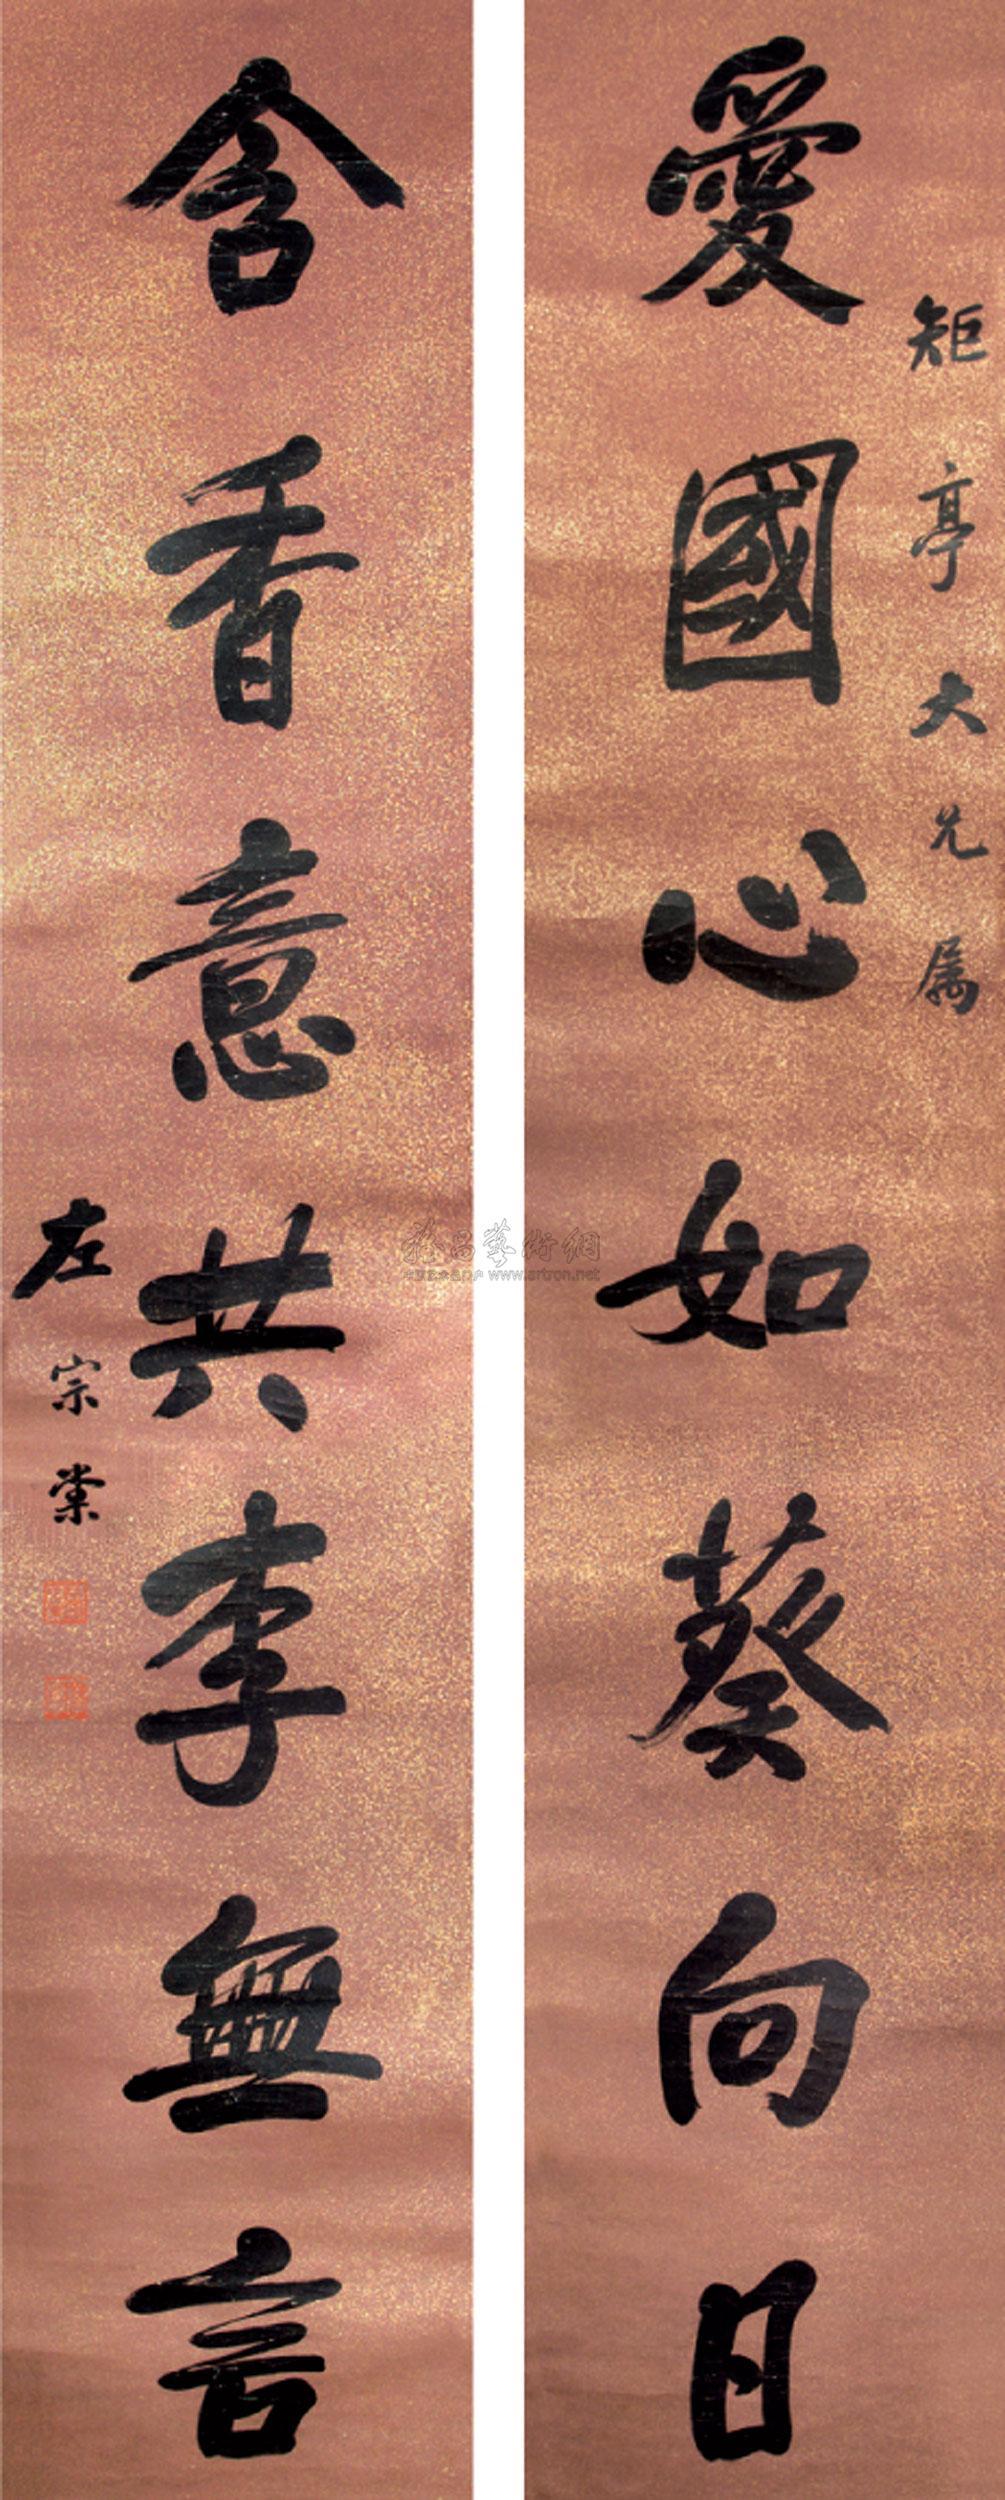 矩亭大兄属
愛國心如葵向日
含香意共李無言
左宗棠
雅昌藝術網
www.artron.net